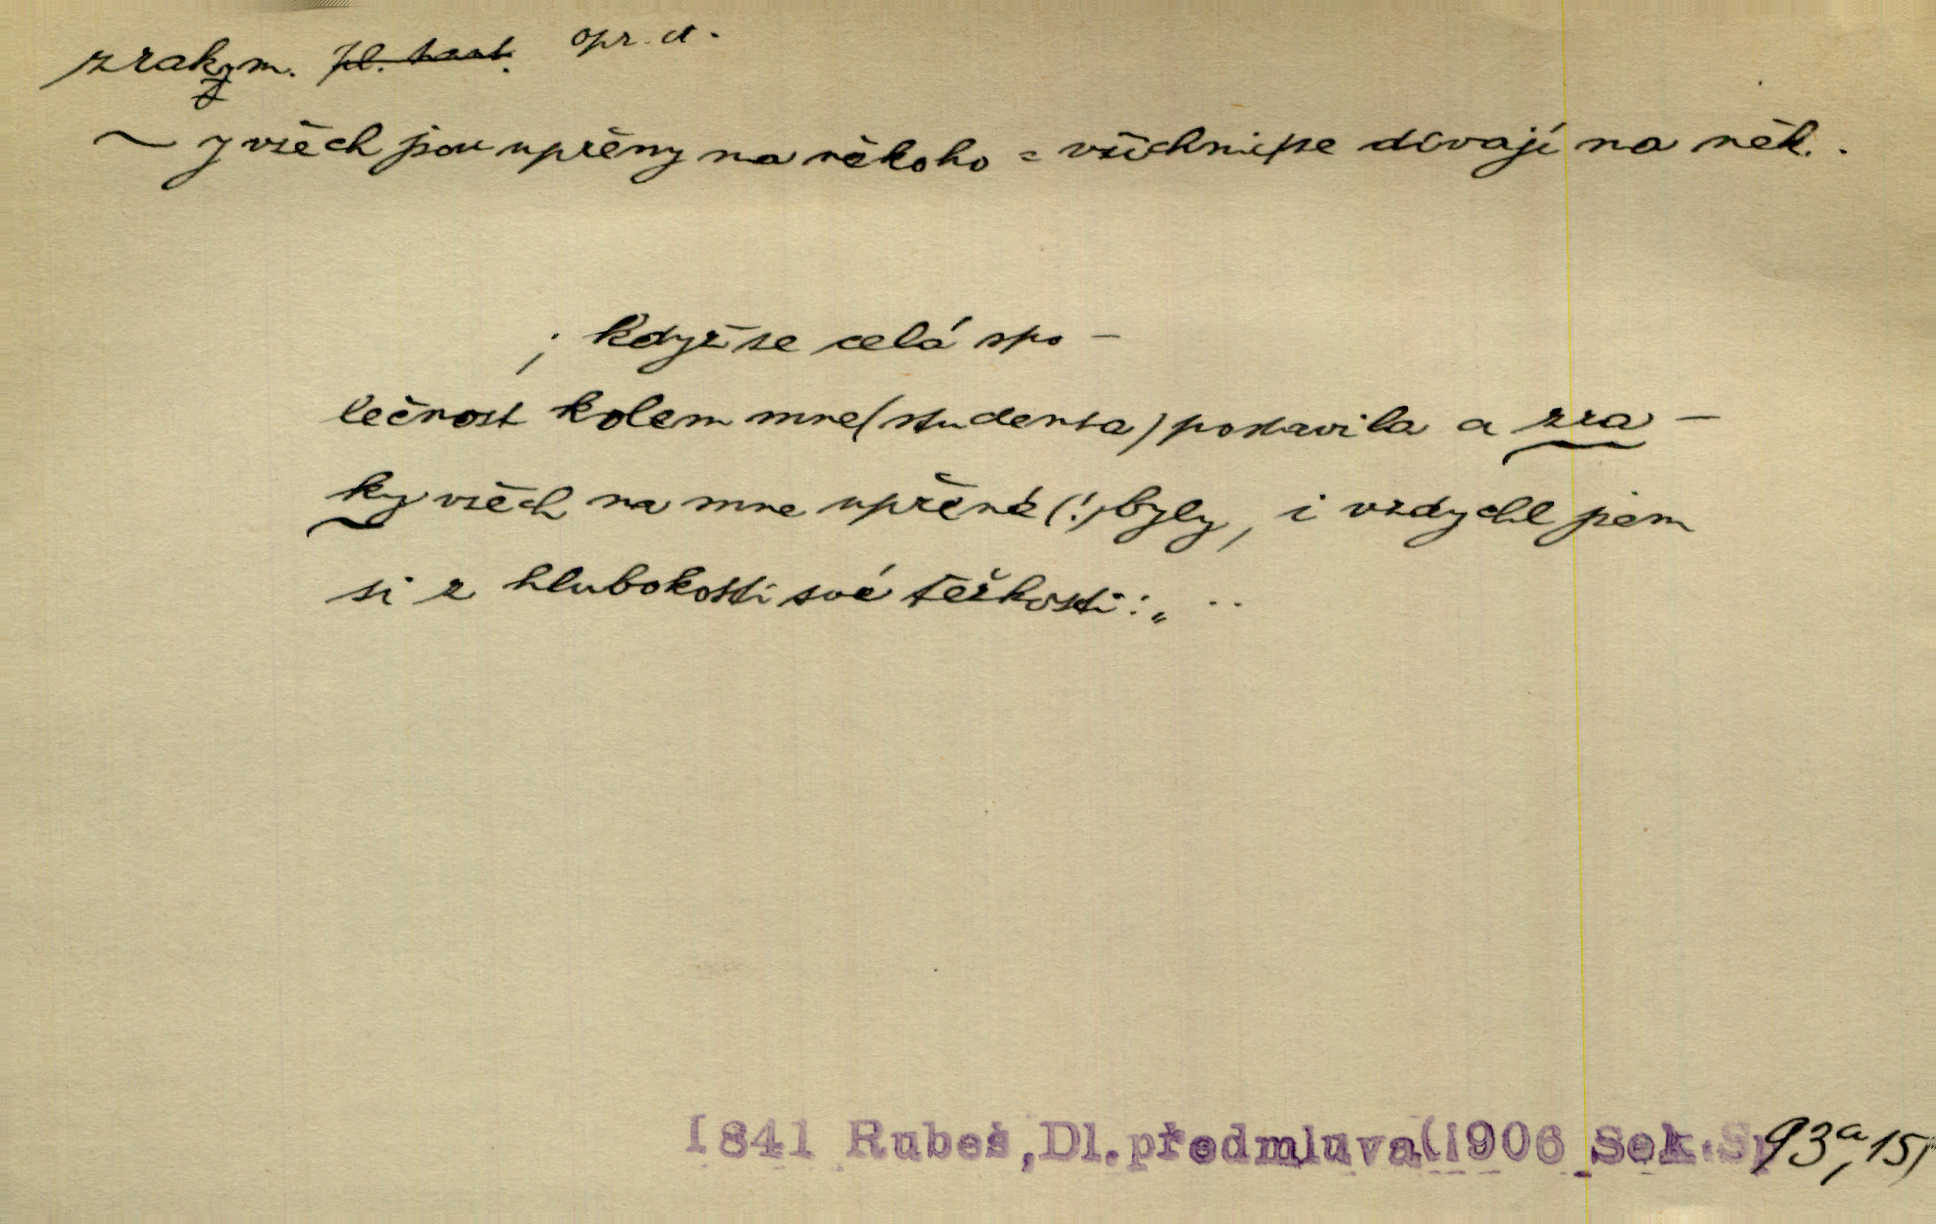 zrak m. pl. tant. opr. A.
~ y všech jsou upřeny na někoho = všichni se dívají na něk.
; když se celá spo–
lečnost kolem mne (studenta) postavila a zra–
ky všech na mne upřené (!) byly, i vzdychl jsem
si z hlubokosti své těžkosti: „ ..
1841 Rubeš, Dl. předmluva (1906 Sek. Sp 93a, 15)